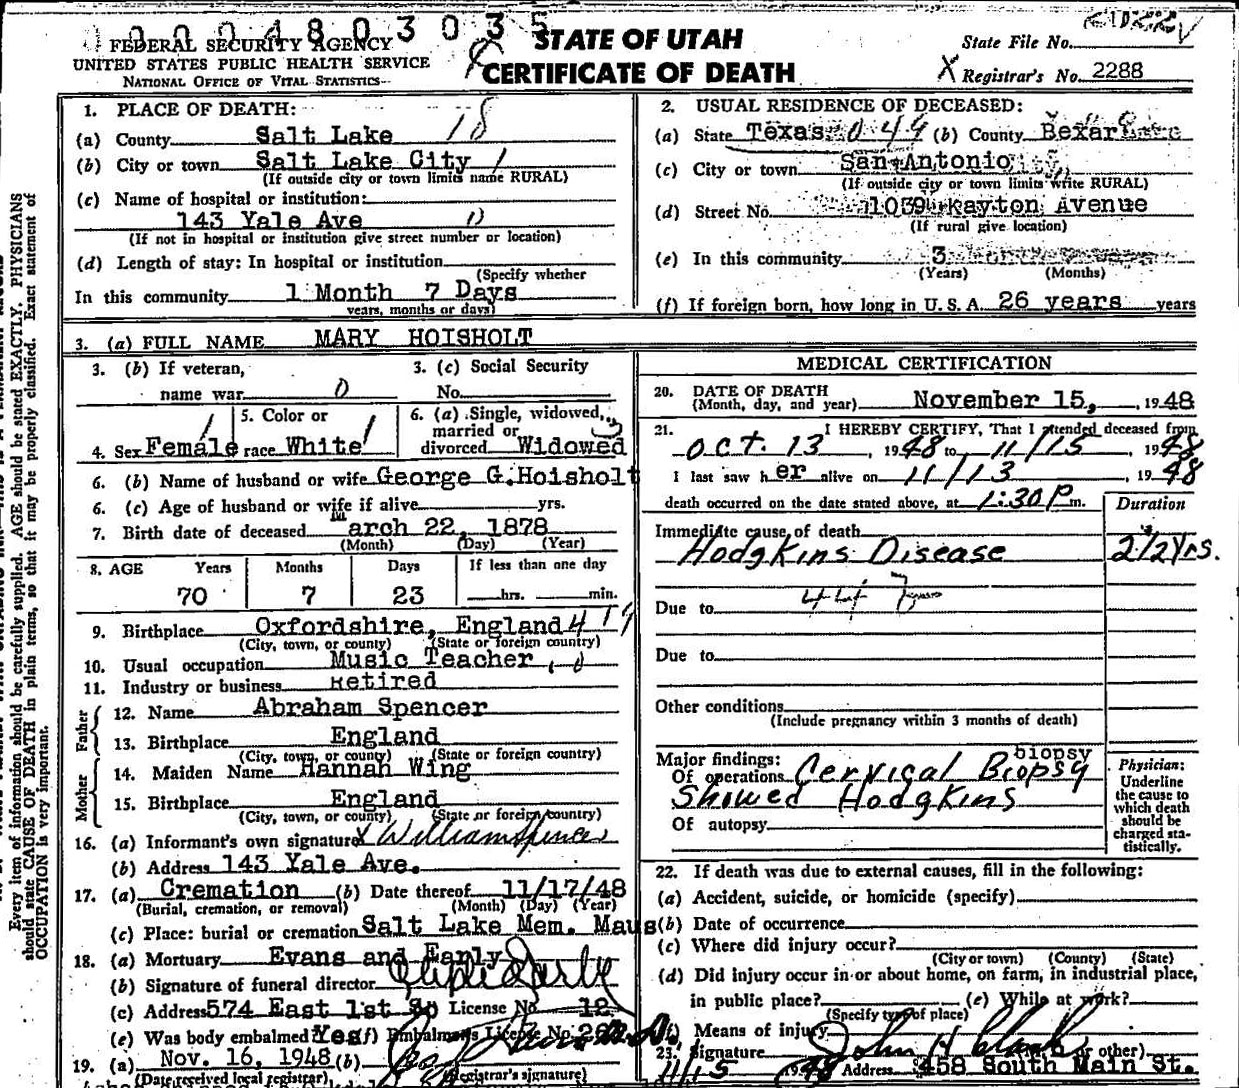 0 0 0 4 8 0 3 0 3 5
FEDERAL SECURITY AGENCY
UNITED STATES PUBLIC HEALTH SERVICE
NATIONAL OFFICE OF VITAL STATISTICS
STATE OF UTAH
CERTIFICATE OF DEATH
State File No.
X Registrar's No. 2288
1. PLACE OF DEATH: 18
(a) County Salt Lake
(b) City or town Salt Lake City 1
(If outside city or town limits name RURAL)
(c) Name of hospital or institution:
143 Yale Ave 0
(If not in hospital or institution give street number or location)
(d) Length of stay: In hospital or institution
(Specify whether
In this community 1 Month 7 Days
years, months or days)
2. USUAL RESIDENCE OF DECEASED:
(a) State Texas 049 (b) County Bexar
(c) City or town San Antonio
(If outside city or town limits write RURAL)
(d) Street No. 1039 Kayton Avenue
(If rural give location)
(e) In this community 3
(Years) (Months)
(f) If foreign born, how long in U. S. A. 26 years years
3. (a) FULL NAME MARY HOISHOLT
3. (b) If veteran,
name war 0
3. (c) Social Security
No.
4. Sex Female 1
5. Color or
race White 1
6. (a) Single, widowed,
married or
divorced Widowed 3
6. (b) Name of husband or wife George G. Hoisholt
6. (c) Age of husband or wife if alive yrs.
7. Birth date of deceased March 22, 1878
(Month) (Day) (Year)
8. AGE Years Months Days If less than one day
70 7 23 hrs. min.
9. Birthplace Oxfordshire, England 419
(City, town, or county) (State or foreign country)
10. Usual occupation Music Teacher
11. Industry or business Retired
Father
12. Name Abraham Spencer
13. Birthplace England
(City, town, or county) (State or foreign country)
Mother
14. Maiden Name Hannah Wing
15. Birthplace England
(City, town, or county) (State or foreign country)
16. (a) Informant's own signature X William Spencer
(b) Address 143 Yale Ave.
17. (a) Cremation (b) Date thereof 11/17/48
(Burial, cremation, or removal) (Month) (Day) (Year)
(c) Place: burial or cremation Salt Lake Mem. Maus
18. (a) Mortuary Evans and Early
(b) Signature of funeral director
(c) Address 574 East 1st So License No. 12
(e) Was body embalmed? Yes (f) Embalmer's License No.
19. (a) Nov. 16, 1948 (b)
(Date received local registrar) (Registrar's signature)
MEDICAL CERTIFICATION
20. DATE OF DEATH
(Month, day, and year) November 15, , 1948
21. I HEREBY CERTIFY, That I attended deceased from
Oct. 13 , 1948 to 11/15 , 1948
I last saw her alive on 11/13 , 1948
death occurred on the date stated above, at 1:30 P m.
Duration
Immediate cause of death
Hodgkins Disease 2 1/2 Yrs.
Due to 44 7
Due to
Other conditions
(Include pregnancy within 3 months of death)
Major findings: biopsy
Of operations Cervical Biopsy
Showed Hodgkins
Of autopsy
Physician:
Underline
the cause to
which death
should be
charged sta-
tistically.
22. If death was due to external causes, fill in the following:
(a) Accident, suicide, or homicide (specify)
(b) Date of occurrence
(c) Where did injury occur?
(City or town) (County) (State)
(d) Did injury occur in or about home, on farm, in industrial place,
in public place? (e) While at work?
(Specify type of place)
(f) Means of injury
23. Signature John H Clark or other)
11/15 1948 Address 458 South Main St.
Every item of information should be carefully supplied. AGE should be stated EXACTLY. PHYSICIANS
should state CAUSE OF DEATH in plain terms, so that it may be properly classified. Exact statement of
OCCUPATION is very important.